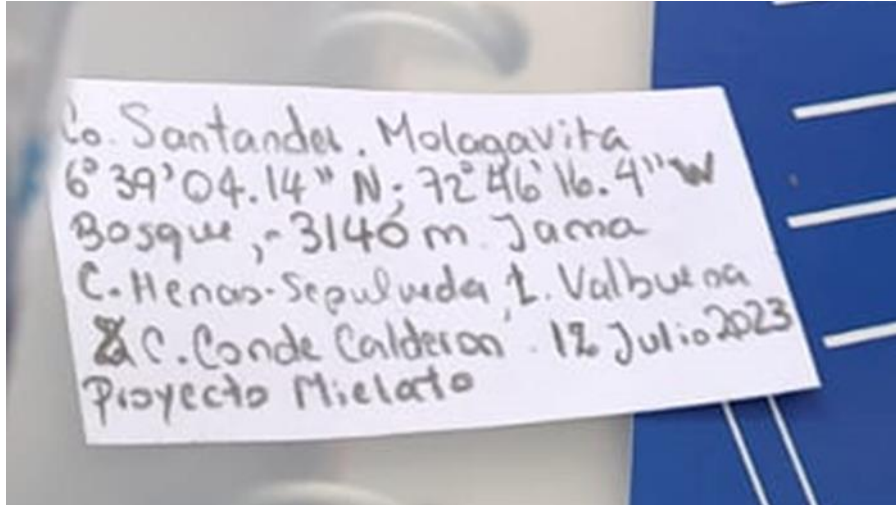 Co. Santander. Molagavita
6° 39' 04.14" N; 72° 46' 16.4" W
Bosque, ~3140 m. Jama
C. Henao-Sepulveda, L. Valbuena
& C. Conde Calderon. 12 Julio 2023
Proyecto Mielato